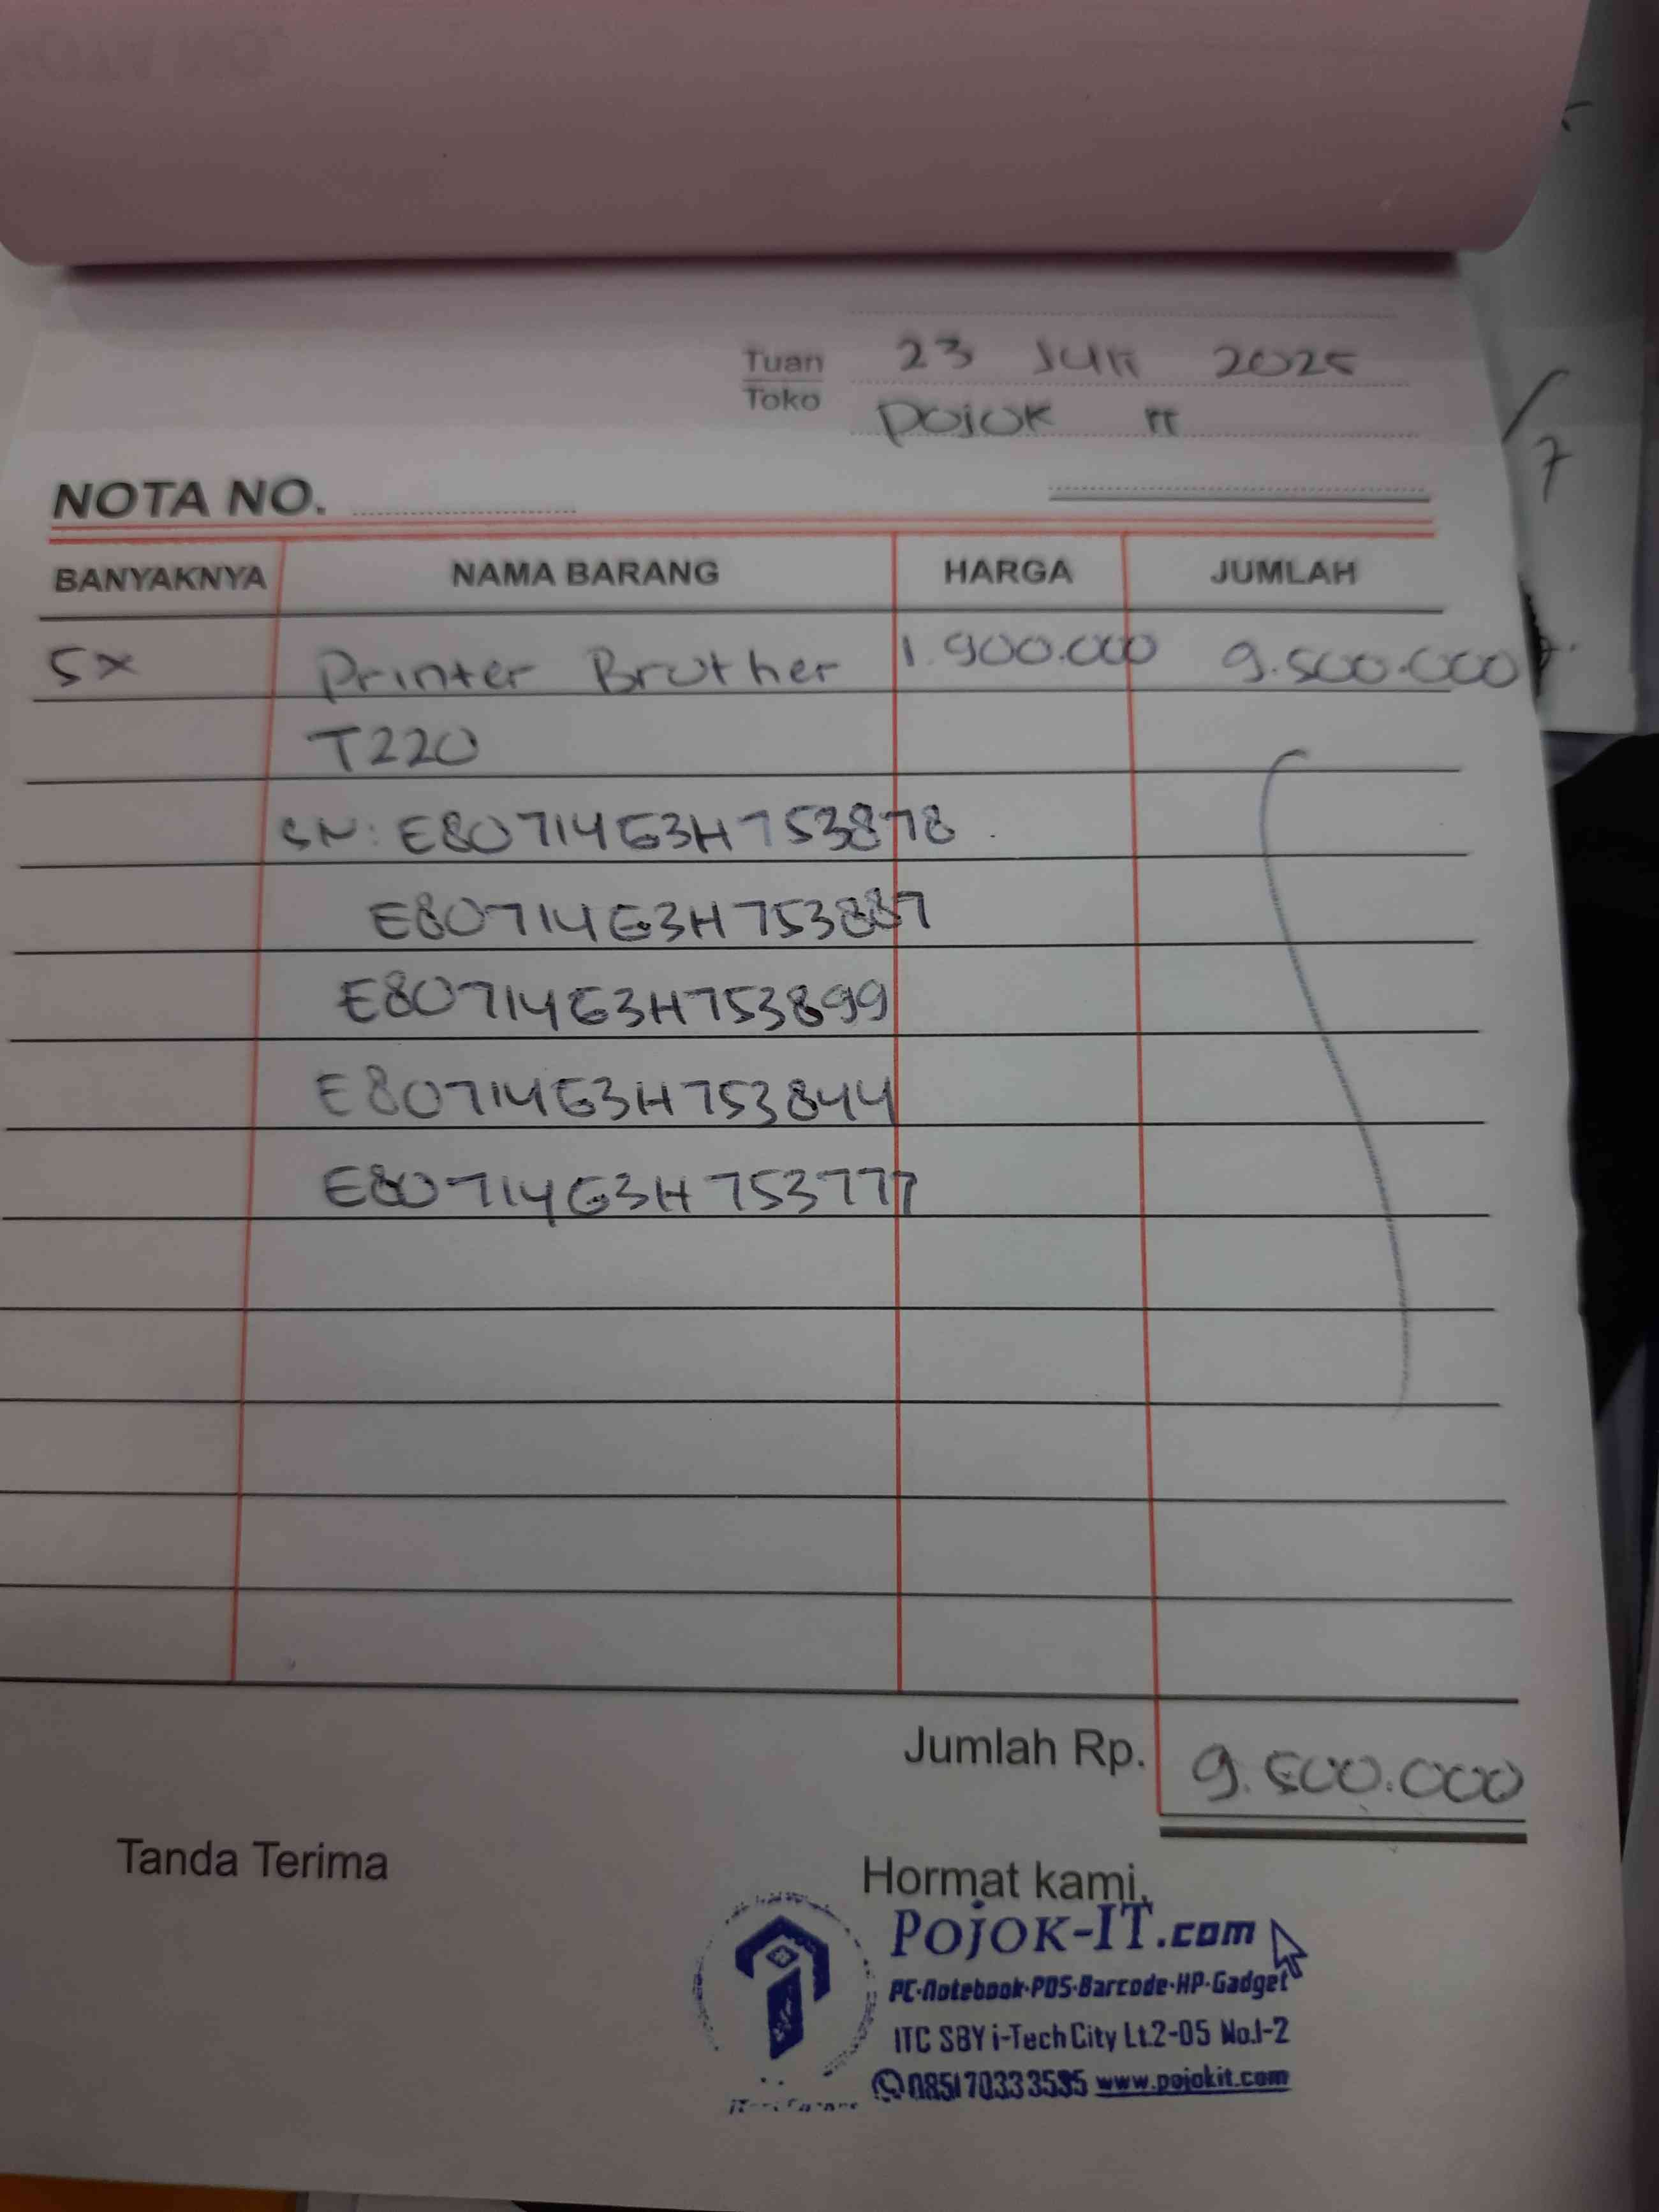 Tuan 23 Juli 2025
Toko Pojok IT
NOTA NO.
BANYAKNYA NAMA BARANG HARGA JUMLAH
5x Printer Brother 1.900.000 9.500.000
T220
SN: E80714G3H753878
E80714G3H753887
E80714G3H753899
E80714G3H753844
E80714G3H753777
Jumlah Rp. 9.500.000
Tanda Terima
Hormat kami,
POJOK-IT.com
PC-Notebook-POS-Barcode-HP-Gadget
ITC SBY i-Tech City Lt.2-D5 No.1-2
085170333535 www.pojokit.com
7